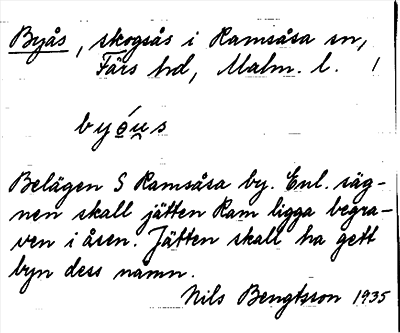 Byås, skogsås i Ramsåsa sn,
Färs hd, Malm. l.
Belägen S Ramsåsa by. Enl. säg-
nen skall jätten Ram ligga begra-
ven i åsen. Jätten skall ha gett
byn dess namn.
Nils Bengtsson 1935